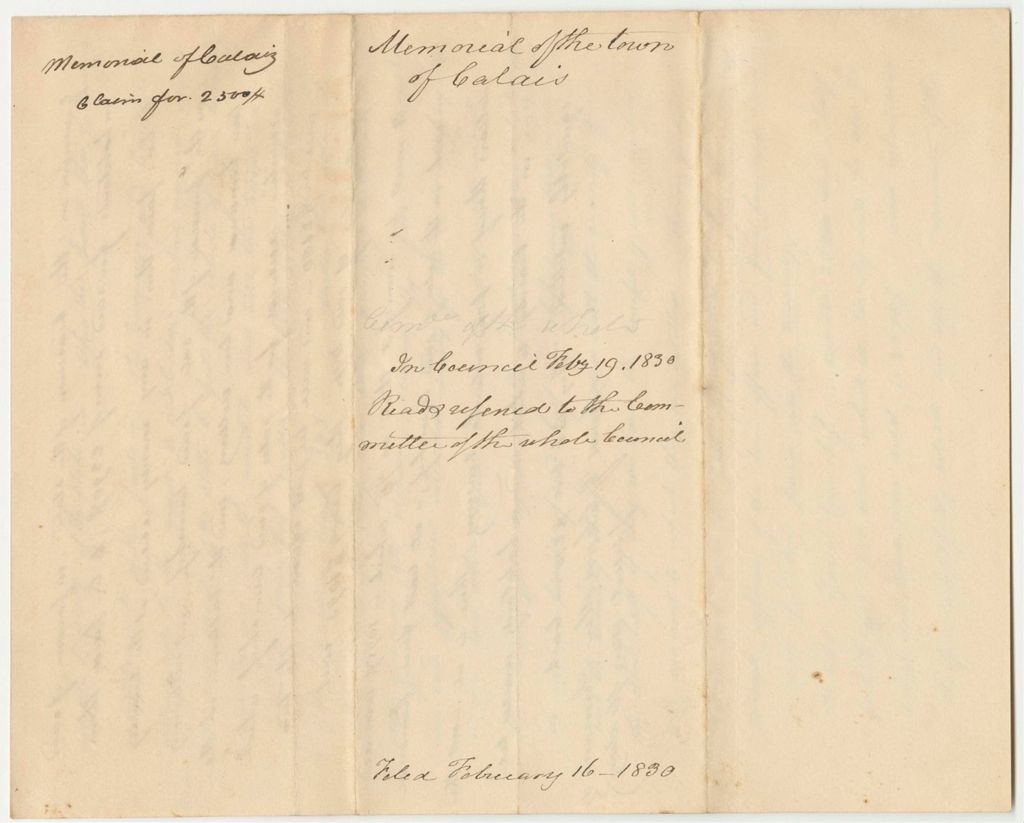 Memorial of Calais
Claim for. 2500$
Memorial of the town
of Calais
Comee of the whole
In Council Feby 19. 1830
Read & referred to the Com-
mittee of the whole Council
Filed February 16 - 1830